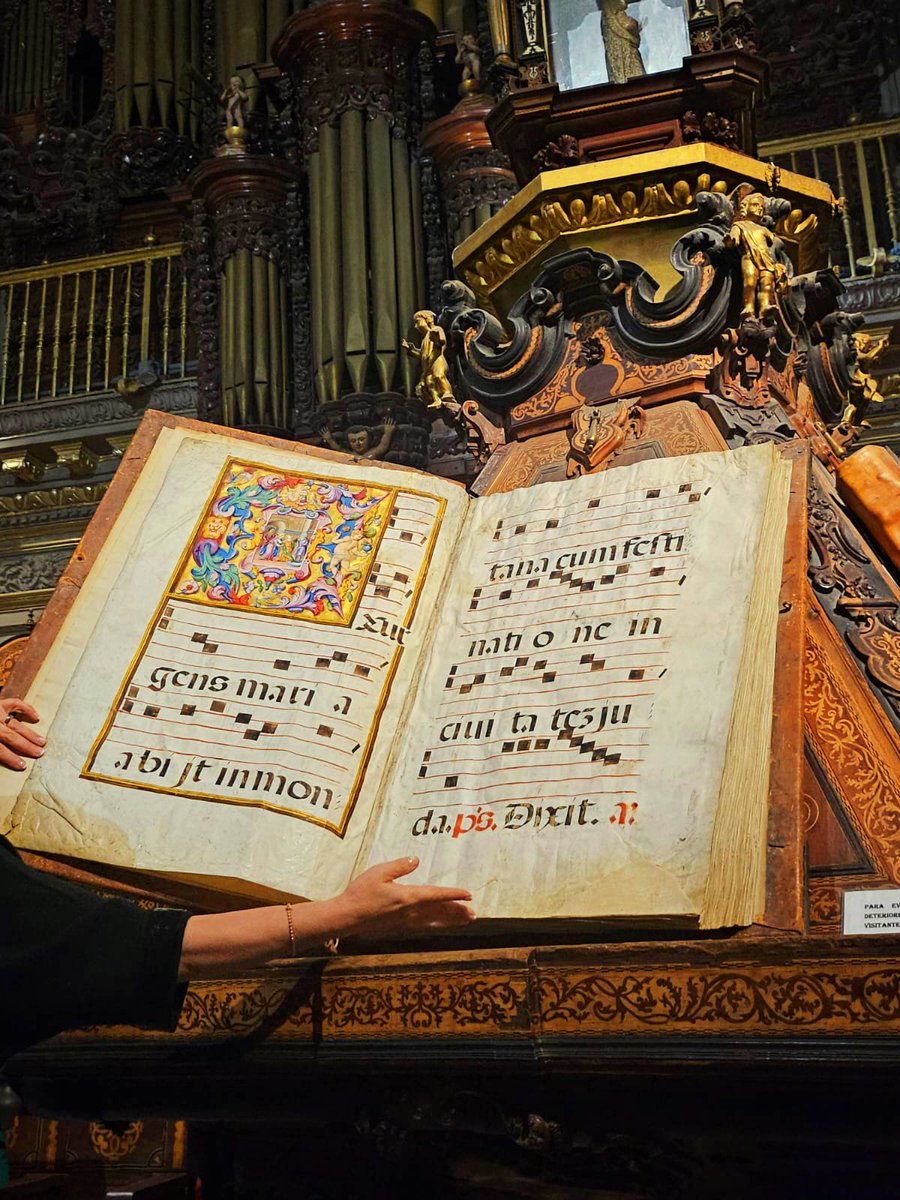 Exur
gens mari a
abijt inmon
tana cum festi
nati o ne in
ciui ta tez ju
da. ps. Dixit. a:
PARA EV
DETERIOR
VISITANTE